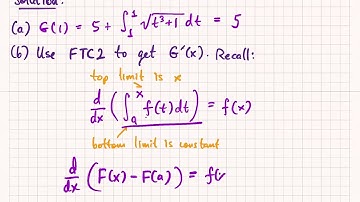 Solution:
(a) G(1) = 5 + ∫₁¹ √(t³+1) dt = 5
(b) Use FTC2 to get G'(x). Recall:
top limit is x
d/dx (∫ₐˣ f(t) dt) = f(x)
bottom limit is constant
d/dx (F(x) - F(a)) = f(